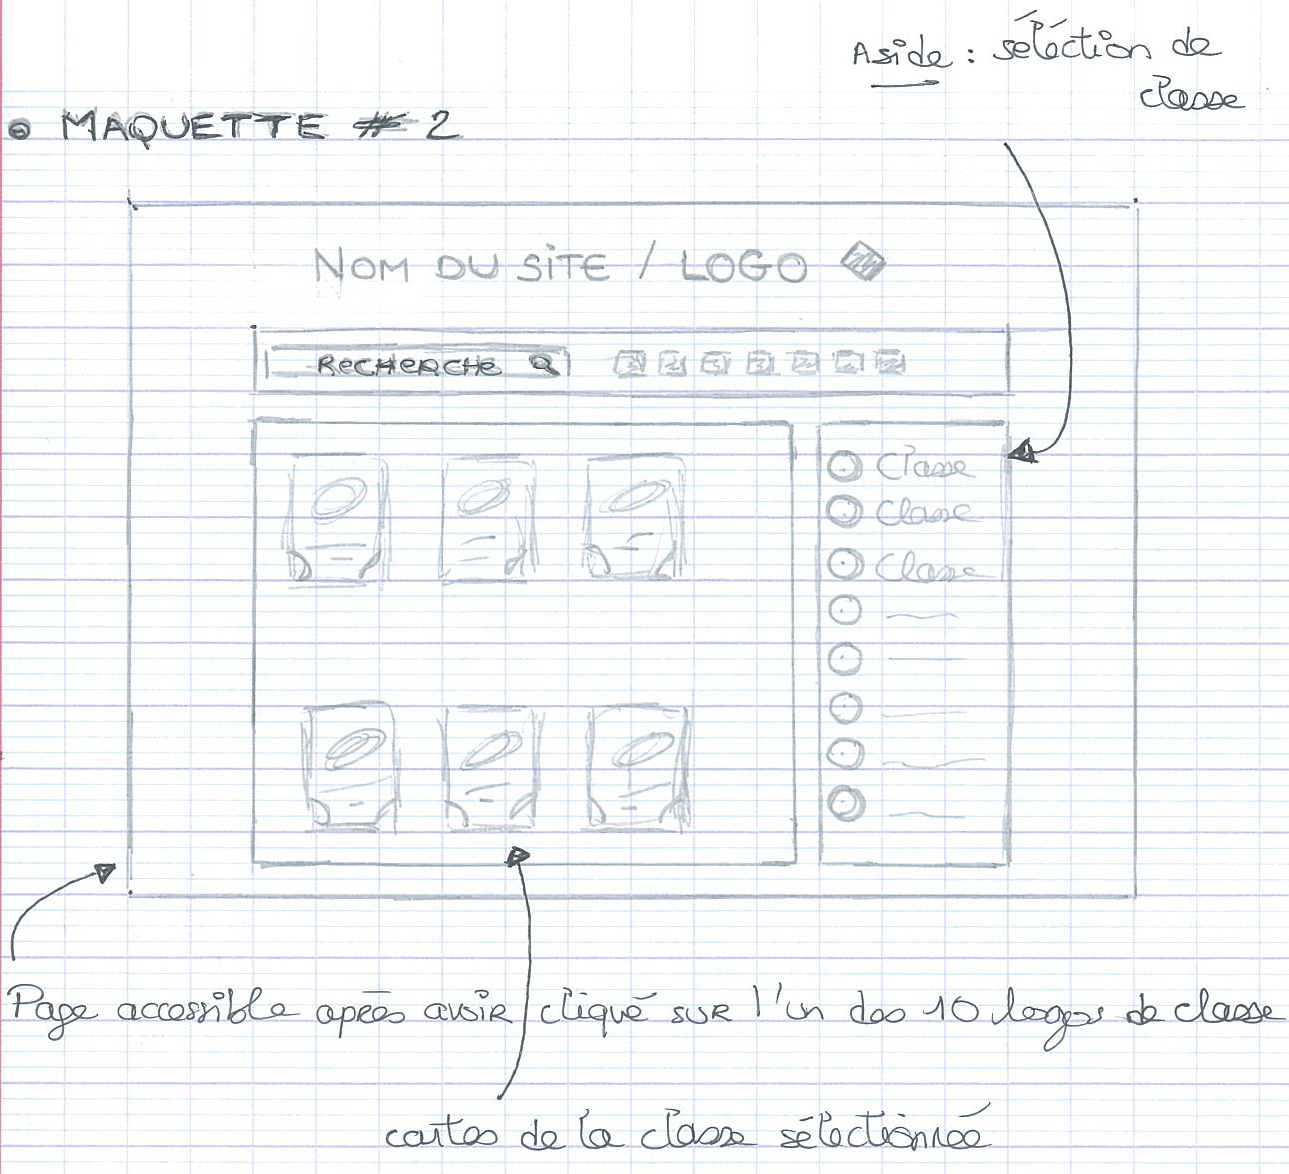 Aside : séléction de
classe
• MAQUETTE # 2
NOM DU SITE / LOGO
RECHERCHE
Classe
Classe
Classe
Page accessible après avoir cliqué sur l'un des 10 logos de classe
cartes de la classe sélectionnée